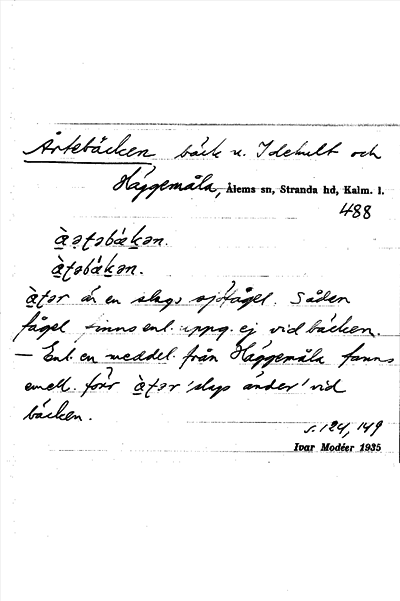 Årtebäcken bäck u. Idehult och
Häggemåla, Ålems sn, Stranda hd, Kalm. l.
488
àəṭəbákən.
àṭəbákən.
àṭər är en slags sjöfågel. Såden
fågel finns enl. uppg. ej vid bäcken.
— Enl. en meddel. från Häggemåla fanns
emell. förr àṭər 'slags änder' vid
bäcken.
s. 124, 149
Ivar Modéer 1935